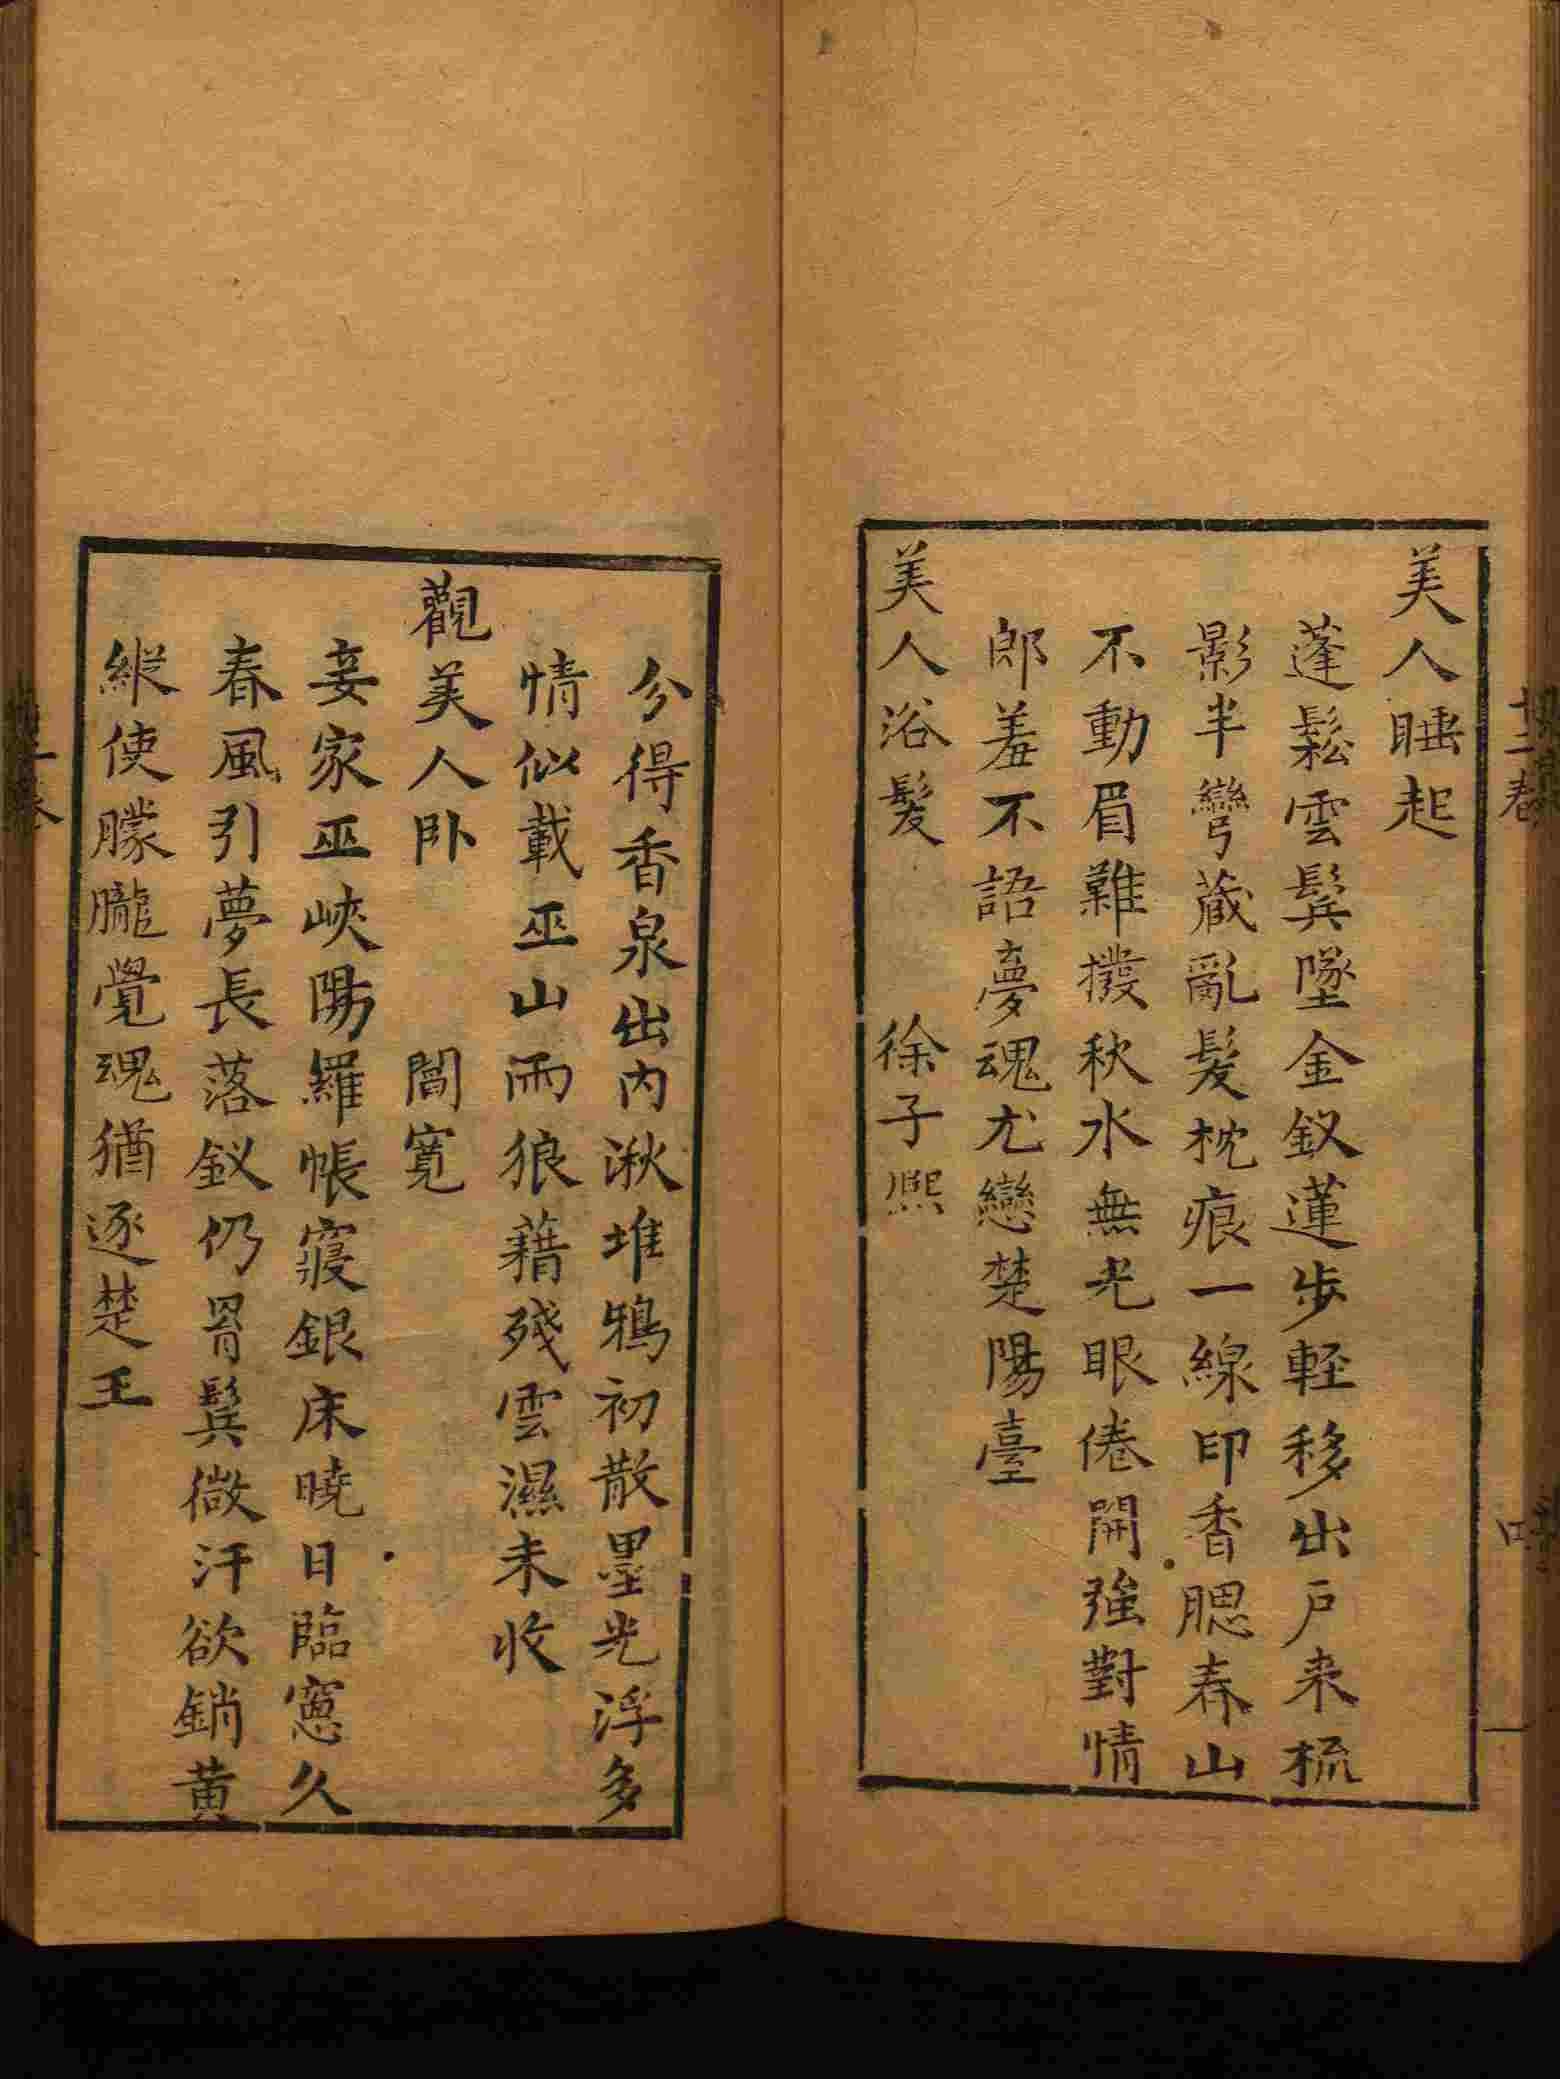 美人睡起
蓬鬆雲鬂墜金釵蓮步輕移出戶来梳
影半彎弓藏亂髮枕痕一線印香腮春山
不動眉難撥秋水無光眼倦開強對情
郎羞不語夢魂尤戀楚陽臺
美人浴髮 徐子熈
分得香泉出内湫堆鴉初散墨光浮多
情似載巫山雨狼藉殘雲濕未收
觀美人卧 閻寬
妾家巫峽陽羅幃寢銀床曉日臨窻久
春風引夢長落釵仍罥鬂微汗欲銷黄
縱使朦朧覺魂猶逐楚王